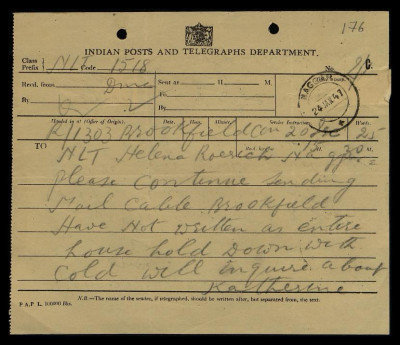 176
INDIAN POSTS AND TELEGRAPHS DEPARTMENT.
Class
Prefix NLT Code 1518
Recd. from
By
Sent at H. M.
To
By
NAGGAR
24 JAN 47
Handed in at (Office of Origin). Date. Hour. Minute. Service Instructions.
R/1303 Brookfield Con 20 25
TO
NLT Helena Roerich Naggar
Recd. here at H. 30 M.
Please continue sending
Mail Cable Brookfield
Have Not written as entire
house hold Down with
Cold will Inquire about
Katherine
N.B.—The name of the sender, if telegraphed, should be written after, but separated from, the text.